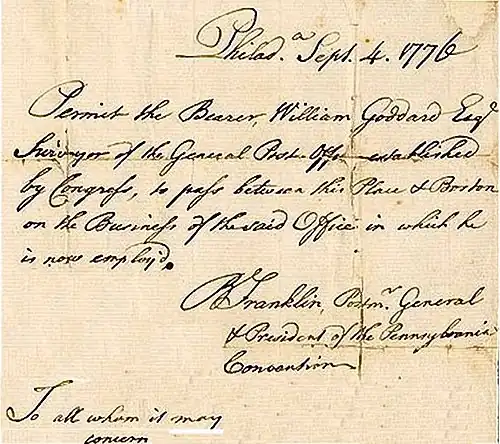 Philad.ᵃ Sept. 4. 1776
Permit the Bearer, William Goddard Esqʳ
Surveyor of the General Post-Office established
by Congress, to pass between this Place & Boston
on the Business of the said Office in which he
is now employ'd.
B Franklin, Postmʳ. General
& President of the Pennsylvania
Convention
To all whom it may
concern